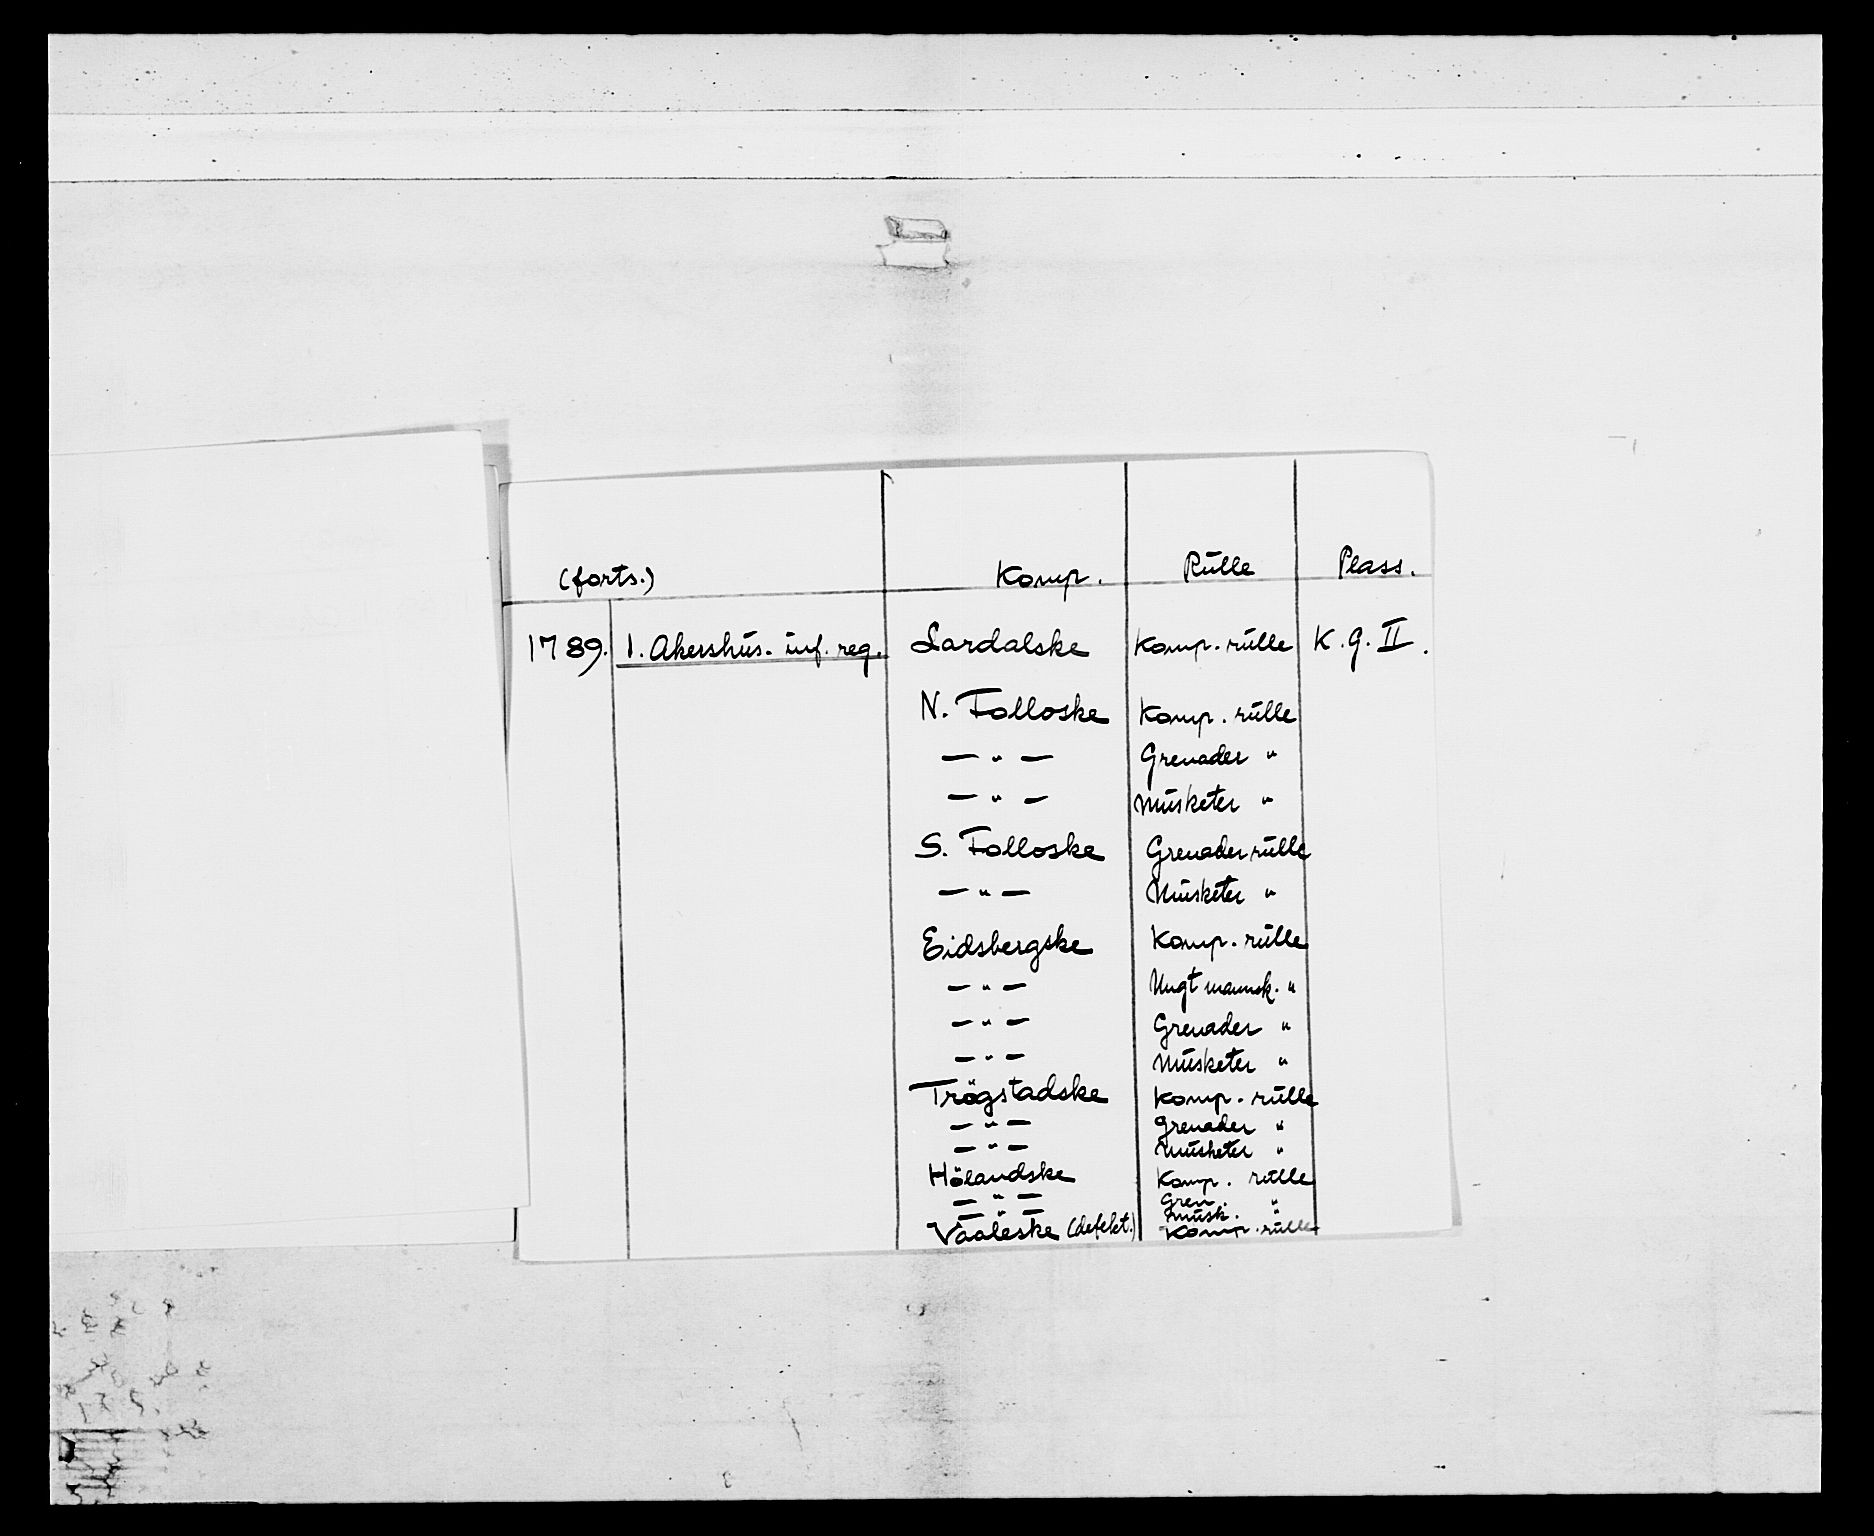 (forts.) Komp. Rulle Plass.
1789. 1. Akershus. inf. reg. Lardalske Komp. rulle K.g. II.
N. Folloske Komp. rulle
— " — Grenader "
— " — Musketer "
S. Folloske Grenader rulle
— " — Musketer "
Eidsbergske Komp. rulle
— " — Ungt mannsk. "
— " — Grenader "
— " — Musketer "
Trögstadske Komp. rulle
— " — Grenader "
— " — Musketer "
Hölandske Komp. rulle
— " — Gren. "
— " — Musk. "
Vaaleske (defekt.) Komp. rulle